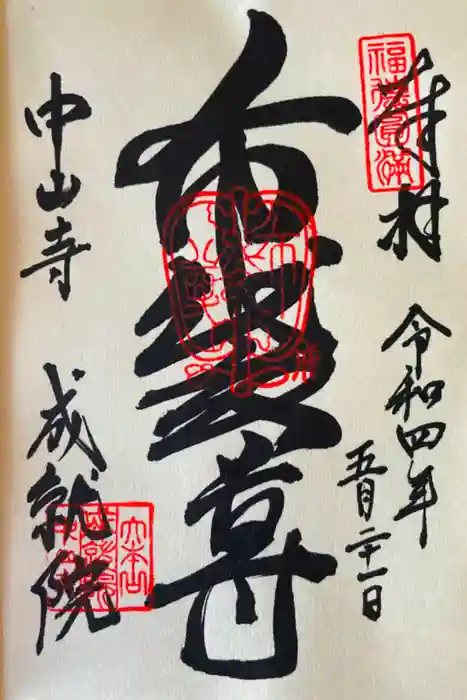 奉拝
令和四年
五月二十一日
布袋尊
中山寺
成就院
大本山